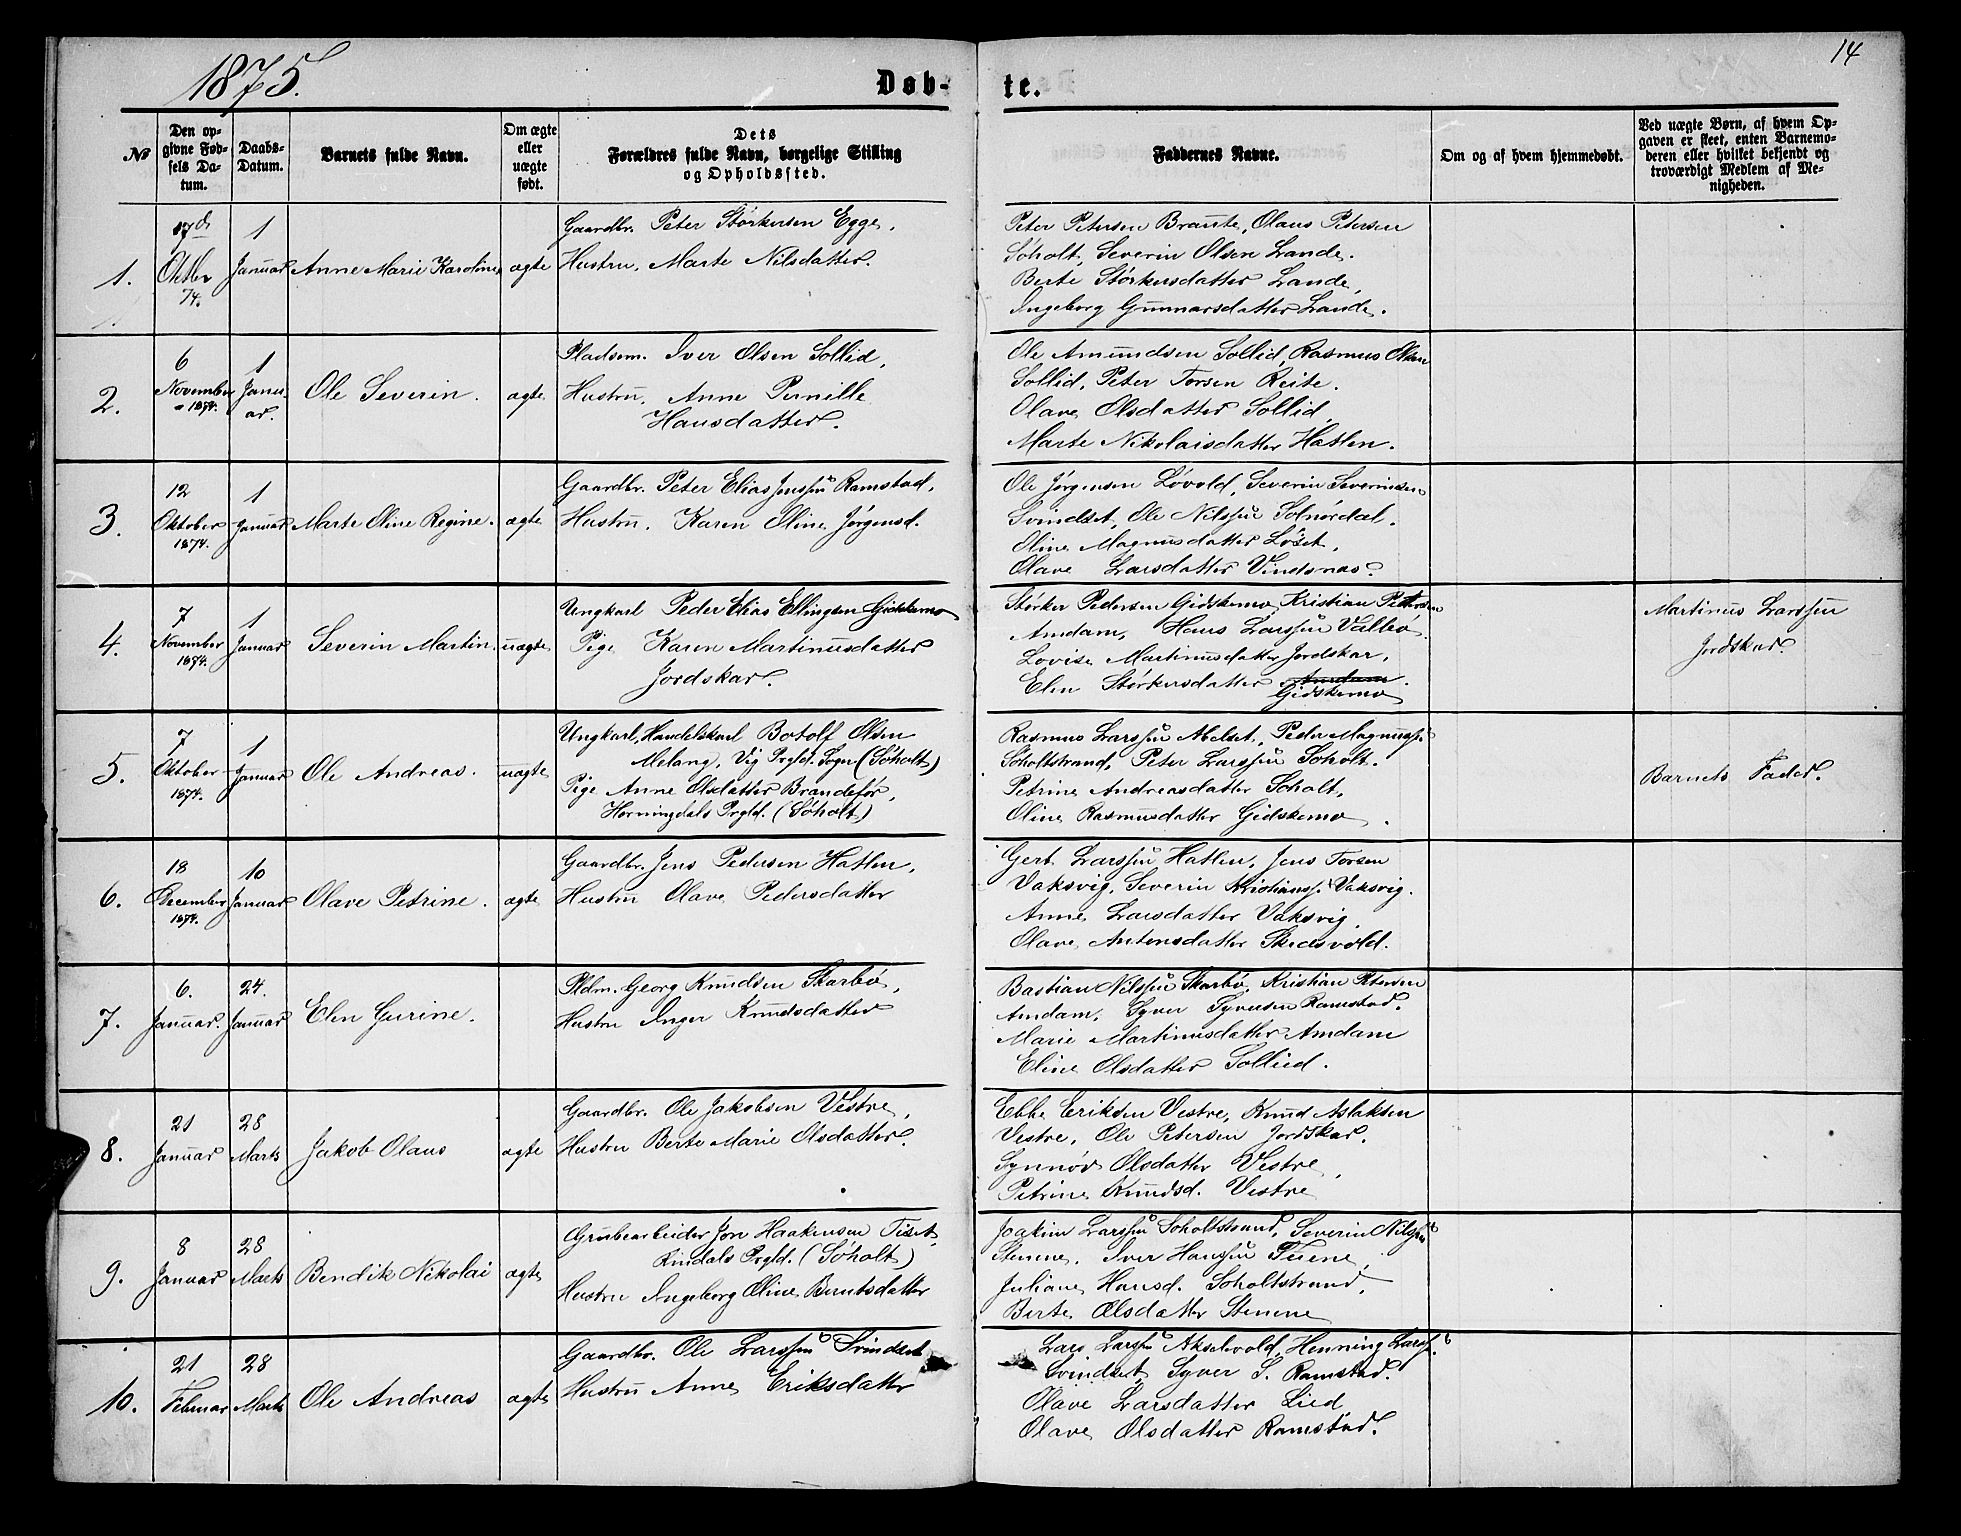 1875.
14
Døb-
te.
No
Den op-
givne Fød-
sels Da-
tum.
Daabs-
Datum.
Barnets fulde Navn.
Om ægte
eller
uægte
født.
Dets
Forældres fulde Navn, borgelige Stilling
og Opholdssted.
Faddernes Navne.
Om og af hvem hjemmedøbt.
Ved uægte Børn, af hvem Op-
gaven er skeet, enten Barnemo-
deren eller hvilket bekjendt og
troværdigt Medlem af Me-
nigheden.
1.
17de
Oktbr
74.
1
Januar
Anne Marie Karoline
ægte
Gaardbr. Peter Størkersen Egge.
Hustru, Marte Nilsdatter.
Peter Petersen Braute, Olaus Petersen
Søholt. Severin Olsen Lande.
Berte Størkersdatter Lande,
Ingeborg Gunnarsdatter Lande.
2.
6
November
1874.
1
Janu-
ar.
Ole Severin.
ægte
Pladsem. Iver Olsen Sollid,
Hustru, Anne Pernille
Hansdatter.
Ole Amundsen Sollid, Rasmus Olsen
Sollid, Peter Torsen Reite.
Olave Olsdatter Sollid,
Marte Nikolaisdatter Hatlen.
3.
12
Oktober
1874.
1
Januar
Marte Oline Regine.
ægte
Gaardbr. Peter Elias Jenssen Ramstad,
Hustru, Karen Oline Jørgensd.
Ole Jørgensen Løvold, Severin Severinsen
Svindset, Ole Nilssen Solnørdal.
Oline Magnusdatter Løset,
Olave Larsdatter Vindsnæs.
4.
7
November
1874.
1
Januar
Severin Martin.
uægte
Ungkarl Peder Elias Ellingsen Gidskemo
Pige Karen Martinusdatter
Jordskar.
Størker Pedersen Gidskemo, Kristian Petersen
Amdam, Hans Larssen Valbø.
Lovise Martinusdatter Jordskar,
Elen Størkersdatter Amdam.
Gidskemo
Martinus Larssen
Jordskar.
5.
7
Oktober
1874.
1
Januar
Ole Andreas.
uægte
Ungkarl, Handelskarl Botolf Olsen
Melang, Vig Prgld. Sogn (Søholt)
Pige Anne Olsdatter Brandefør,
Horningdals Prgld. (Søholt)
Rasmus Larssen Abelset, Peder Magnuss.
Søholtstrand, Peter Larssen Søholt.
Petrine Andreasdatter Søholt,
Oline Rasmusdatter Gidskemo.
Barnets Fader.
6.
18
December
1874.
10
Januar
Olave Petrine.
ægte
Gaardbr. Jens Pedersen Hatlen,
Hustru Olave Pedersdatter
Gert Larssen Hatlen, Jens Torsen
Vaksvig, Severin Kristianss. Vaksvig.
Anne Larsdatter Vaksvig,
Olave Antonsdatter
7.
6.
Januar.
24.
Januar
Elen Gurine.
Pldm. Georg Knudsen Skarbø,
Hustru Inger Knudsdatter
Bastian Nilssen Skarbø, Kristian Petersen
Amdam, Syver Syversen Ramstad.
Marie Martinusdatter Amdam
Eline Olsdatter Sollied.
8.
21
Januar
28
Marts
Jakob Olaus
ægte
Gaardbr. Ole Jakobsen Vestre,
Hustru Berte Marie Olsdatter.
Ebbe Eriksen Vestre, Knud Aslaksen
Vestre, Ole Petersen Jordskar.
Synnøv Olsdatter Vestre,
Petrine Knudsd. Vestre
9.
8
Januar
28
Marts
Bendik Nikolai
ægte
Grubearbeider Jon Haakensen Tiset,
Rindals Prgld. (Søholt)
Hustru Ingeborg Oline Berntsdatter
Joakim Larssen Søholtstrand, Severin Nilssen
Stenene, Iver Hanssen
Juliane Hansd. Søholtstrand,
Berte Olsdatter Stenene
10.
21
Februar
28
Marts
Ole Andreas
ægte
Gaardbr. Ole Larssen Svindset
Hustru Anne Eriksdatter
Lars Larssen Akselvold, Henning Larss.
Svindset, Syver S. Ramstad.
Olave Larsdatter Lied
Olave Olsdatter Ramstad.